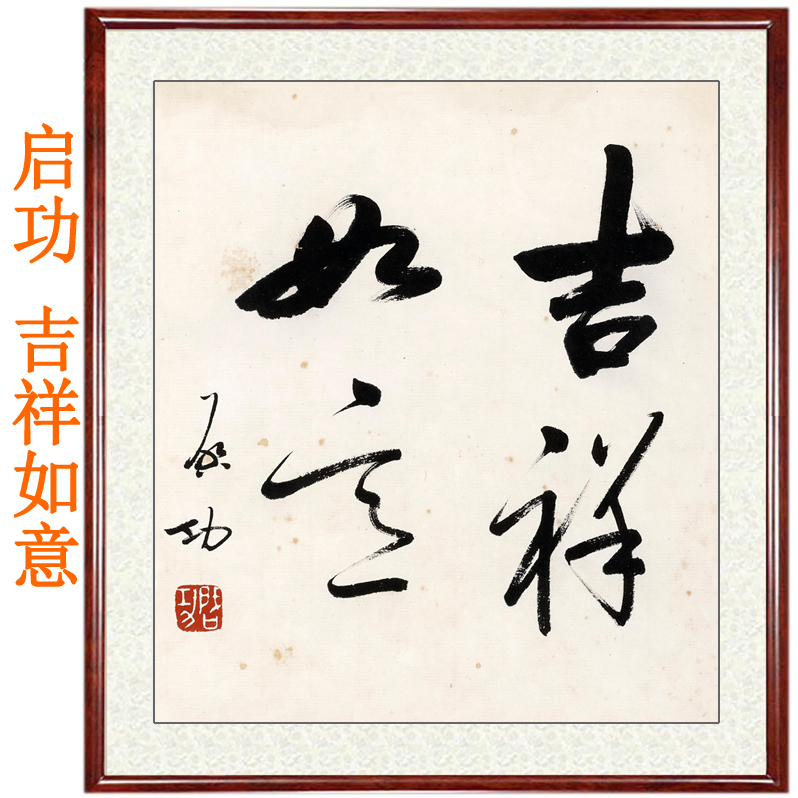 启功 吉祥如意
吉祥
如意
启功
启功